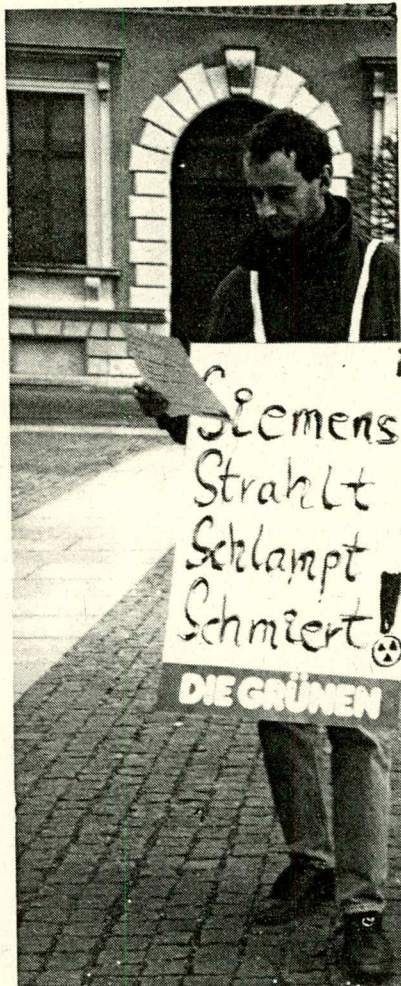 Siemens
Strahlt
Schlampt
Schmiert!
DIE GRÜNEN